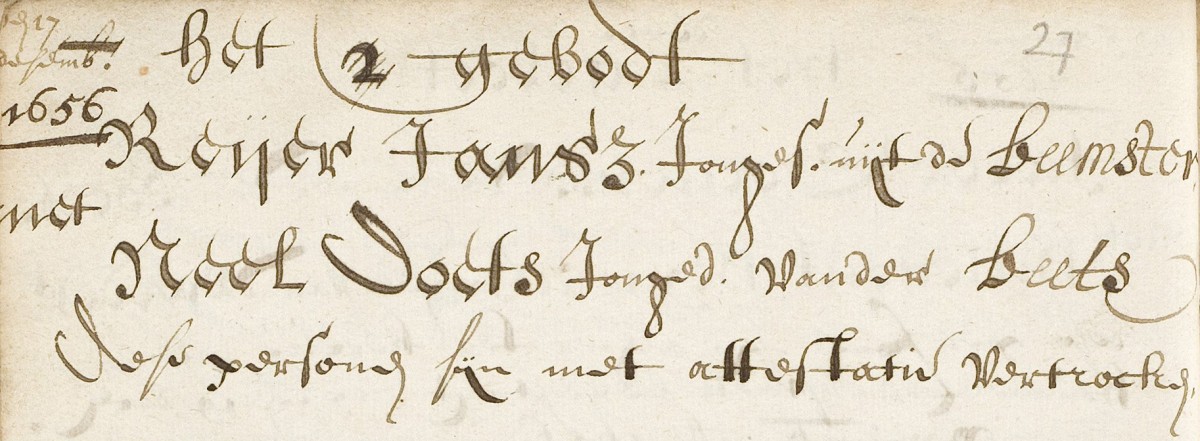 den 17
desemb.
1656
het 2 gebodt 27
Reijer Jansz. Jonges. uijt de beemster
met
Neel Doets Jonged. vander beets
dese personen sijn met attestatie vertrocken